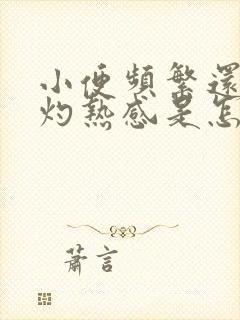 小便頻繁還
灼熱感是怎
蕭言